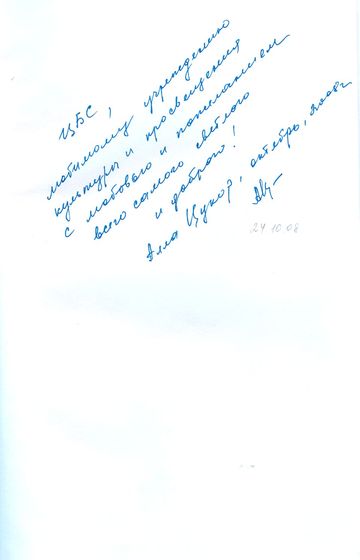 ЦБС,
любимому учреждению
культуры и просвещения
с любовью и пожеланием
всего самого светлого
и доброго!
Алла Цукор, октябрь, 2008г
24 10 08